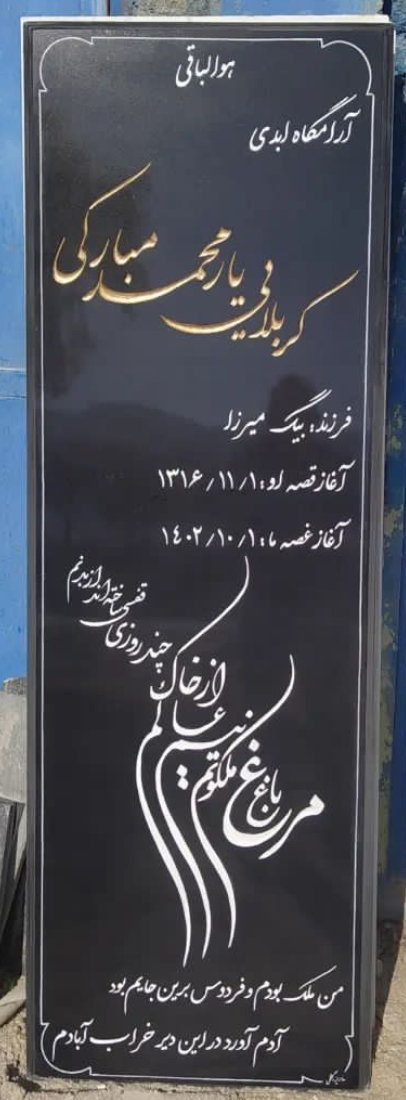 هوالباقی
آرامگاه ابدی
کربلایی یارمحمد مبارکی
فرزند: بیگ میرزا
آغاز قصه او: ۱۳۱۶/۱۱/۱
آغاز غصه ما: ۱٤۰۲/۱۰/۱
مرغ باغ ملکوتم
نیم از عالم خاک
چند روزی
قفسی ساخته اند از بدنم
من ملک بودم و فردوس برین جایم بود
آدم آورد در این دیر خراب آبادم